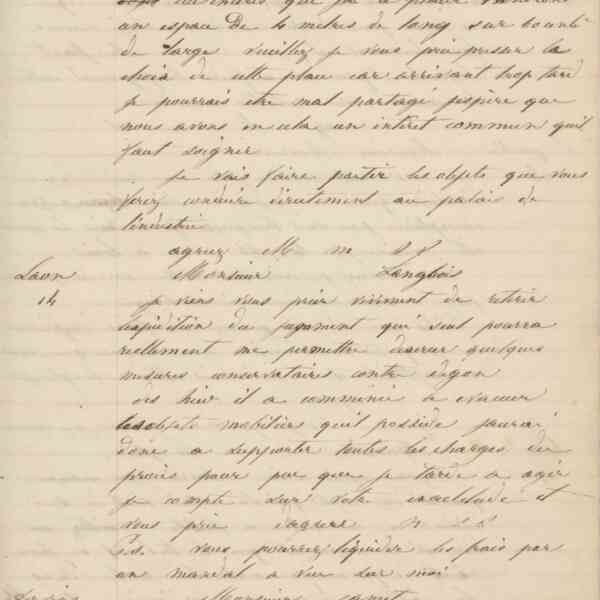 un espace De 4 mètres de long sur
de large veuillez je vous prie presser le
choix de cette place car arrivant trop tard
je pourrais etre mal partagé j'espère que
nous avons en cela un interet commun qu'il
faut soigner
Je vais faire partir les objets que vous
ferez conduire directement au palais de
l'industrie
agréez M m s f
Laon Monsieur Langlois
14
je viens vous prier vivement de retirer
expédition du jugement qui seul pourra
reellement me permettre quelques
mesures conservatoires contre
dès hier il a commencé a évacuer
les objets mobiliers qu'il possède j'aurai
donc a supporter toutes les charges du
procès pour peu que je tarde a agir
je compte sur votre exactitude et
vous prie d'agréer
P.s. vous pourrez liquider les frais par
un mandat a vue sur moi
Monsieur